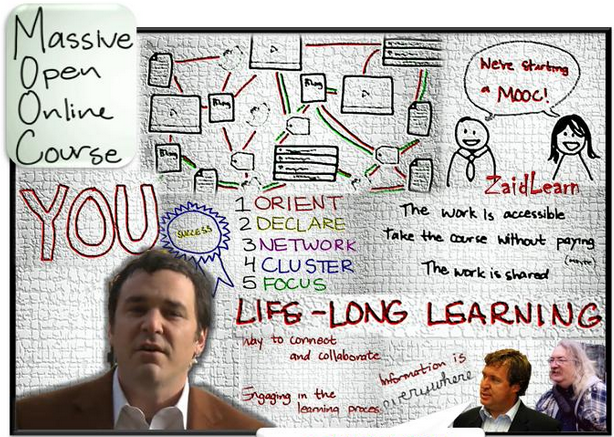 Massive
Open
Online
Course
Blog
Blog
Blog
We're starting
a MOOC!
ZaidLearn
YOU
SUCCESS
1 ORIENT
2 DECLARE
3 NETWORK
4 CLUSTER
5 FOCUS
The work is accessible
Take the course without paying
(maybe)
The work is shared
LIFE-LONG LEARNING
Way to connect
and collaborate
Engaging in the
learning process
Information is
everywhere